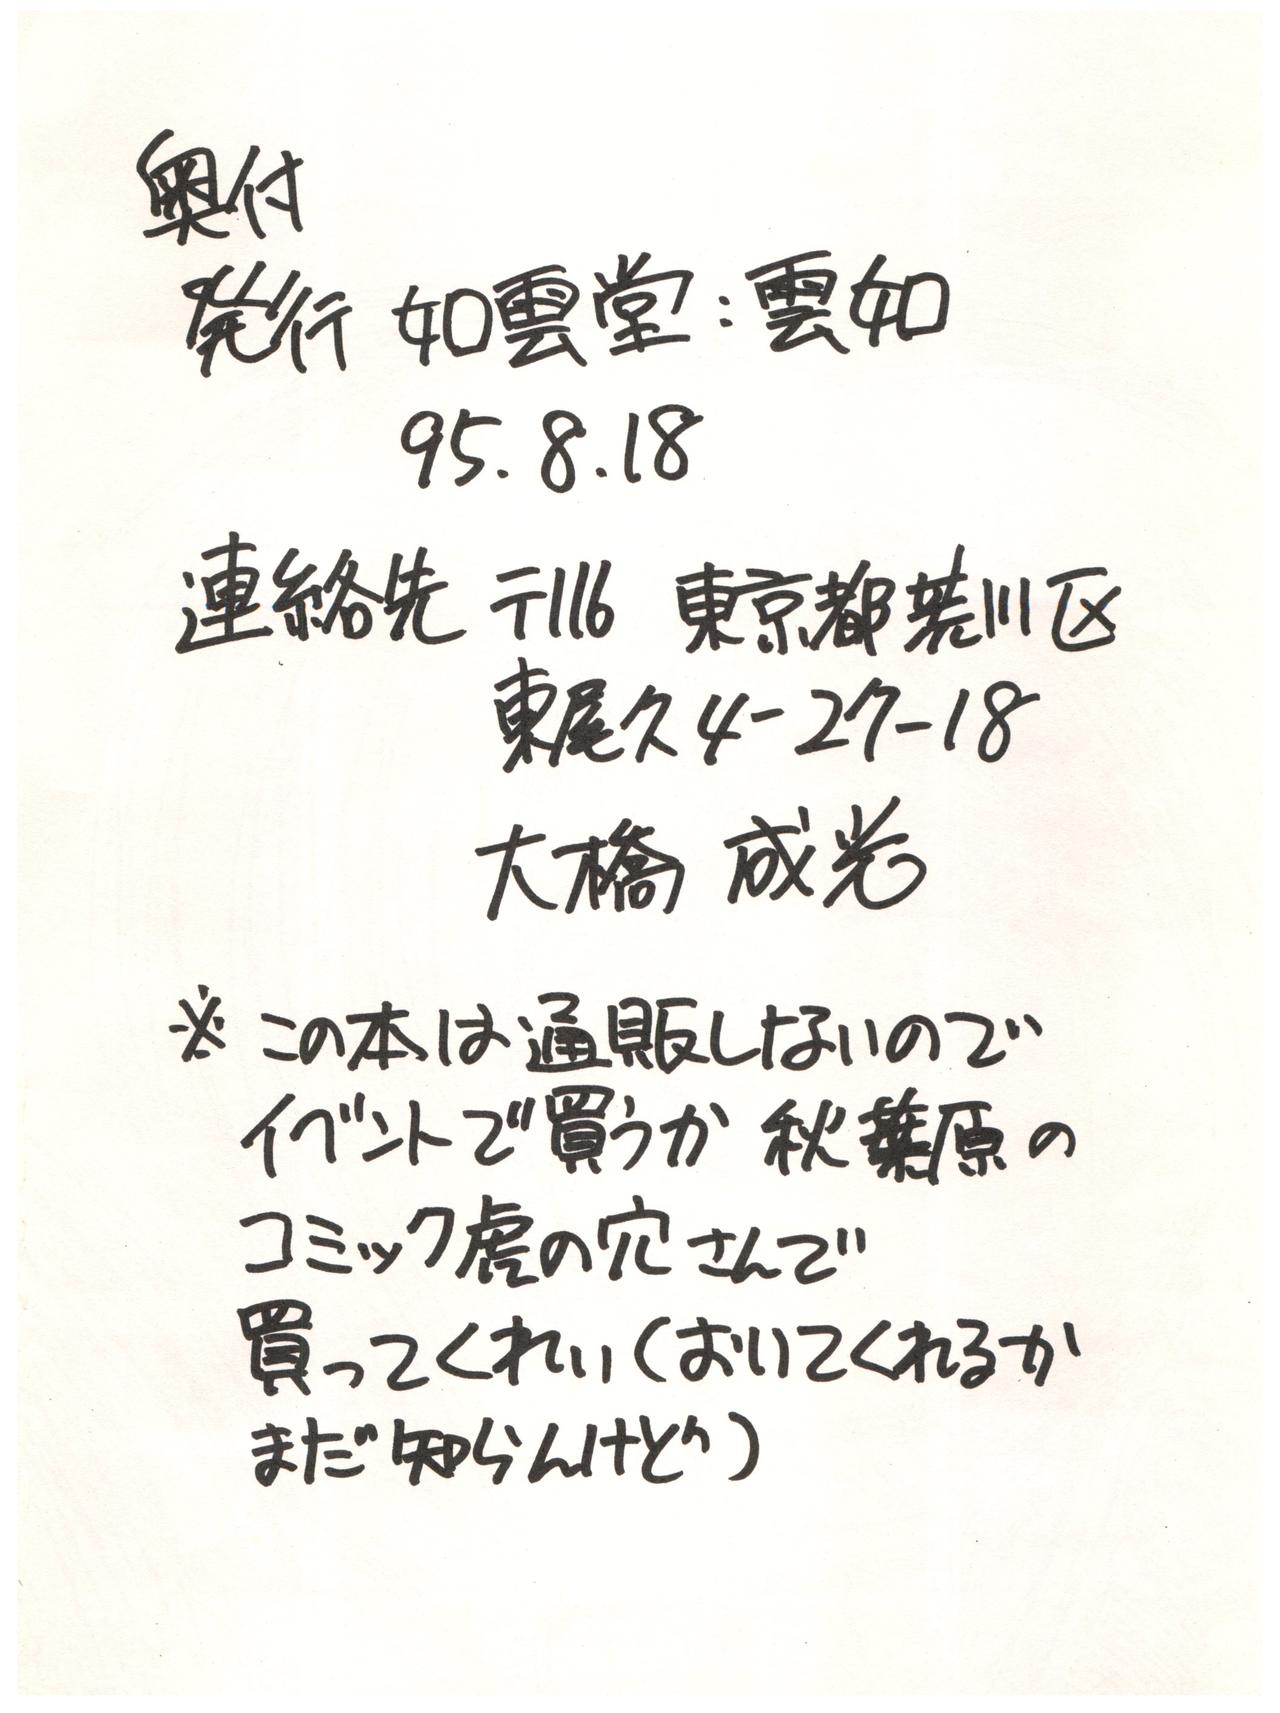 奥付
発行 如雲堂:雲如
95.8.18
連絡先 〒116 東京都荒川区
東尾久4-27-18
大橋 成光
※この本は通販しないので
イベントで買うか 秋葉原の
コミック虎の穴さんで
買ってくれぃ(おいてくれるか
まだ知らんけどゥ)